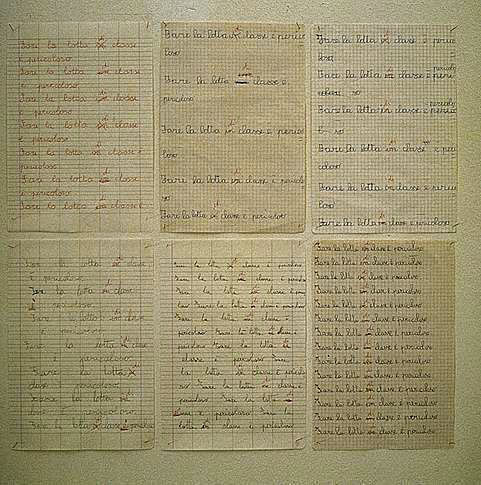 Fare la lotta in classe
è pericoloso
Fare la lotta in classe
è pericoloso
Fare la lotta in classe
è pericoloso
Fare la lotta in classe
è pericoloso
Fare la lotta in classe è
pericoloso
Fare la lotta in classe
è pericoloso
Fare la lotta in classe è
Fare la lotta in classe è perico
loso
Fare la lotta classe è
pericoloso
Fare la lotta in classe è perico
loso
Fare la lotta in classe è perico
loso
Fare la lotta in classe è pericoloso
Fare la lotta in classe è peri
loso
Fare la lotta in classe è
Fare la lotta in classe è
so
Fare la lotta in classe è peri
coloso
Fare la lotta in classe è perico
loso
Fare la lotta in classe è pericoloso
Fare la lotta in classe
è pericoloso
Fare la lotta in classe
è pericoloso
Fare la lotta in classe
è pericoloso
Fare la lotta in classe
è pericoloso
Fare la lotta in
classe è pericoloso
Fare la lotta in
classe è pericoloso
Fare la lotta in classe è pericoloso
Fare la lotta in classe è pericolo
Fare la lotta in classe è perico
loso Fare la lotta in classe è pericolo
so Fare la lotta in classe è pericoloso
Fare la lotta in classe è
pericoloso Fare la lotta in classe è
pericoloso Fare la lotta in
classe è pericoloso Fare
la lotta in classe è perico
loso Fare la lotta in classe è
pericoloso Fare la lotta in
classe è pericoloso Fare la
lotta in classe è pericoloso
Fare la lotta in classe è pericoloso
Fare la lotta in classe è pericoloso
Fare la lotta in classe è pericoloso
Fare la lotta in classe è pericoloso
Fare la lotta in classe è pericoloso
Fare la lotta in classe è pericoloso
Fare la lotta in classe è pericoloso
Fare la lotta in classe è pericoloso
Fare la lotta in classe è pericoloso
Fare la lotta in classe è pericoloso
Fare la lotta in classe è pericoloso
Fare la lotta in classe è pericoloso
Fare la lotta in classe è pericoloso
Fare la lotta in classe è pericoloso